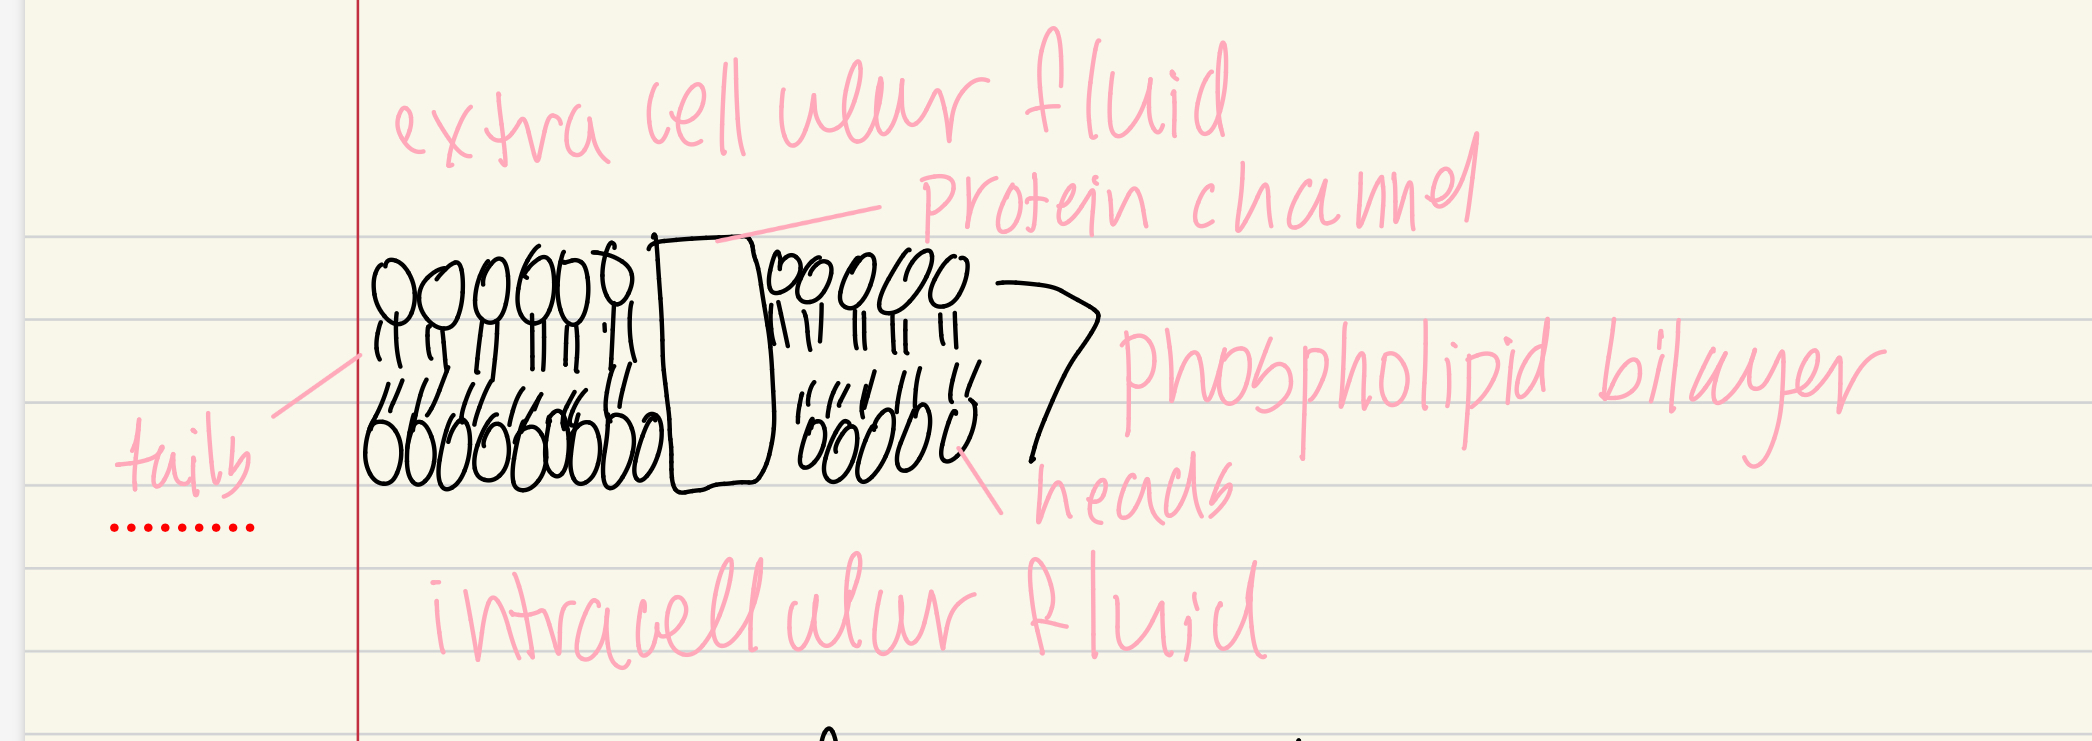 extra cellular fluid
protein channel
phospholipid bilayer
tails
heads
intracellular fluid